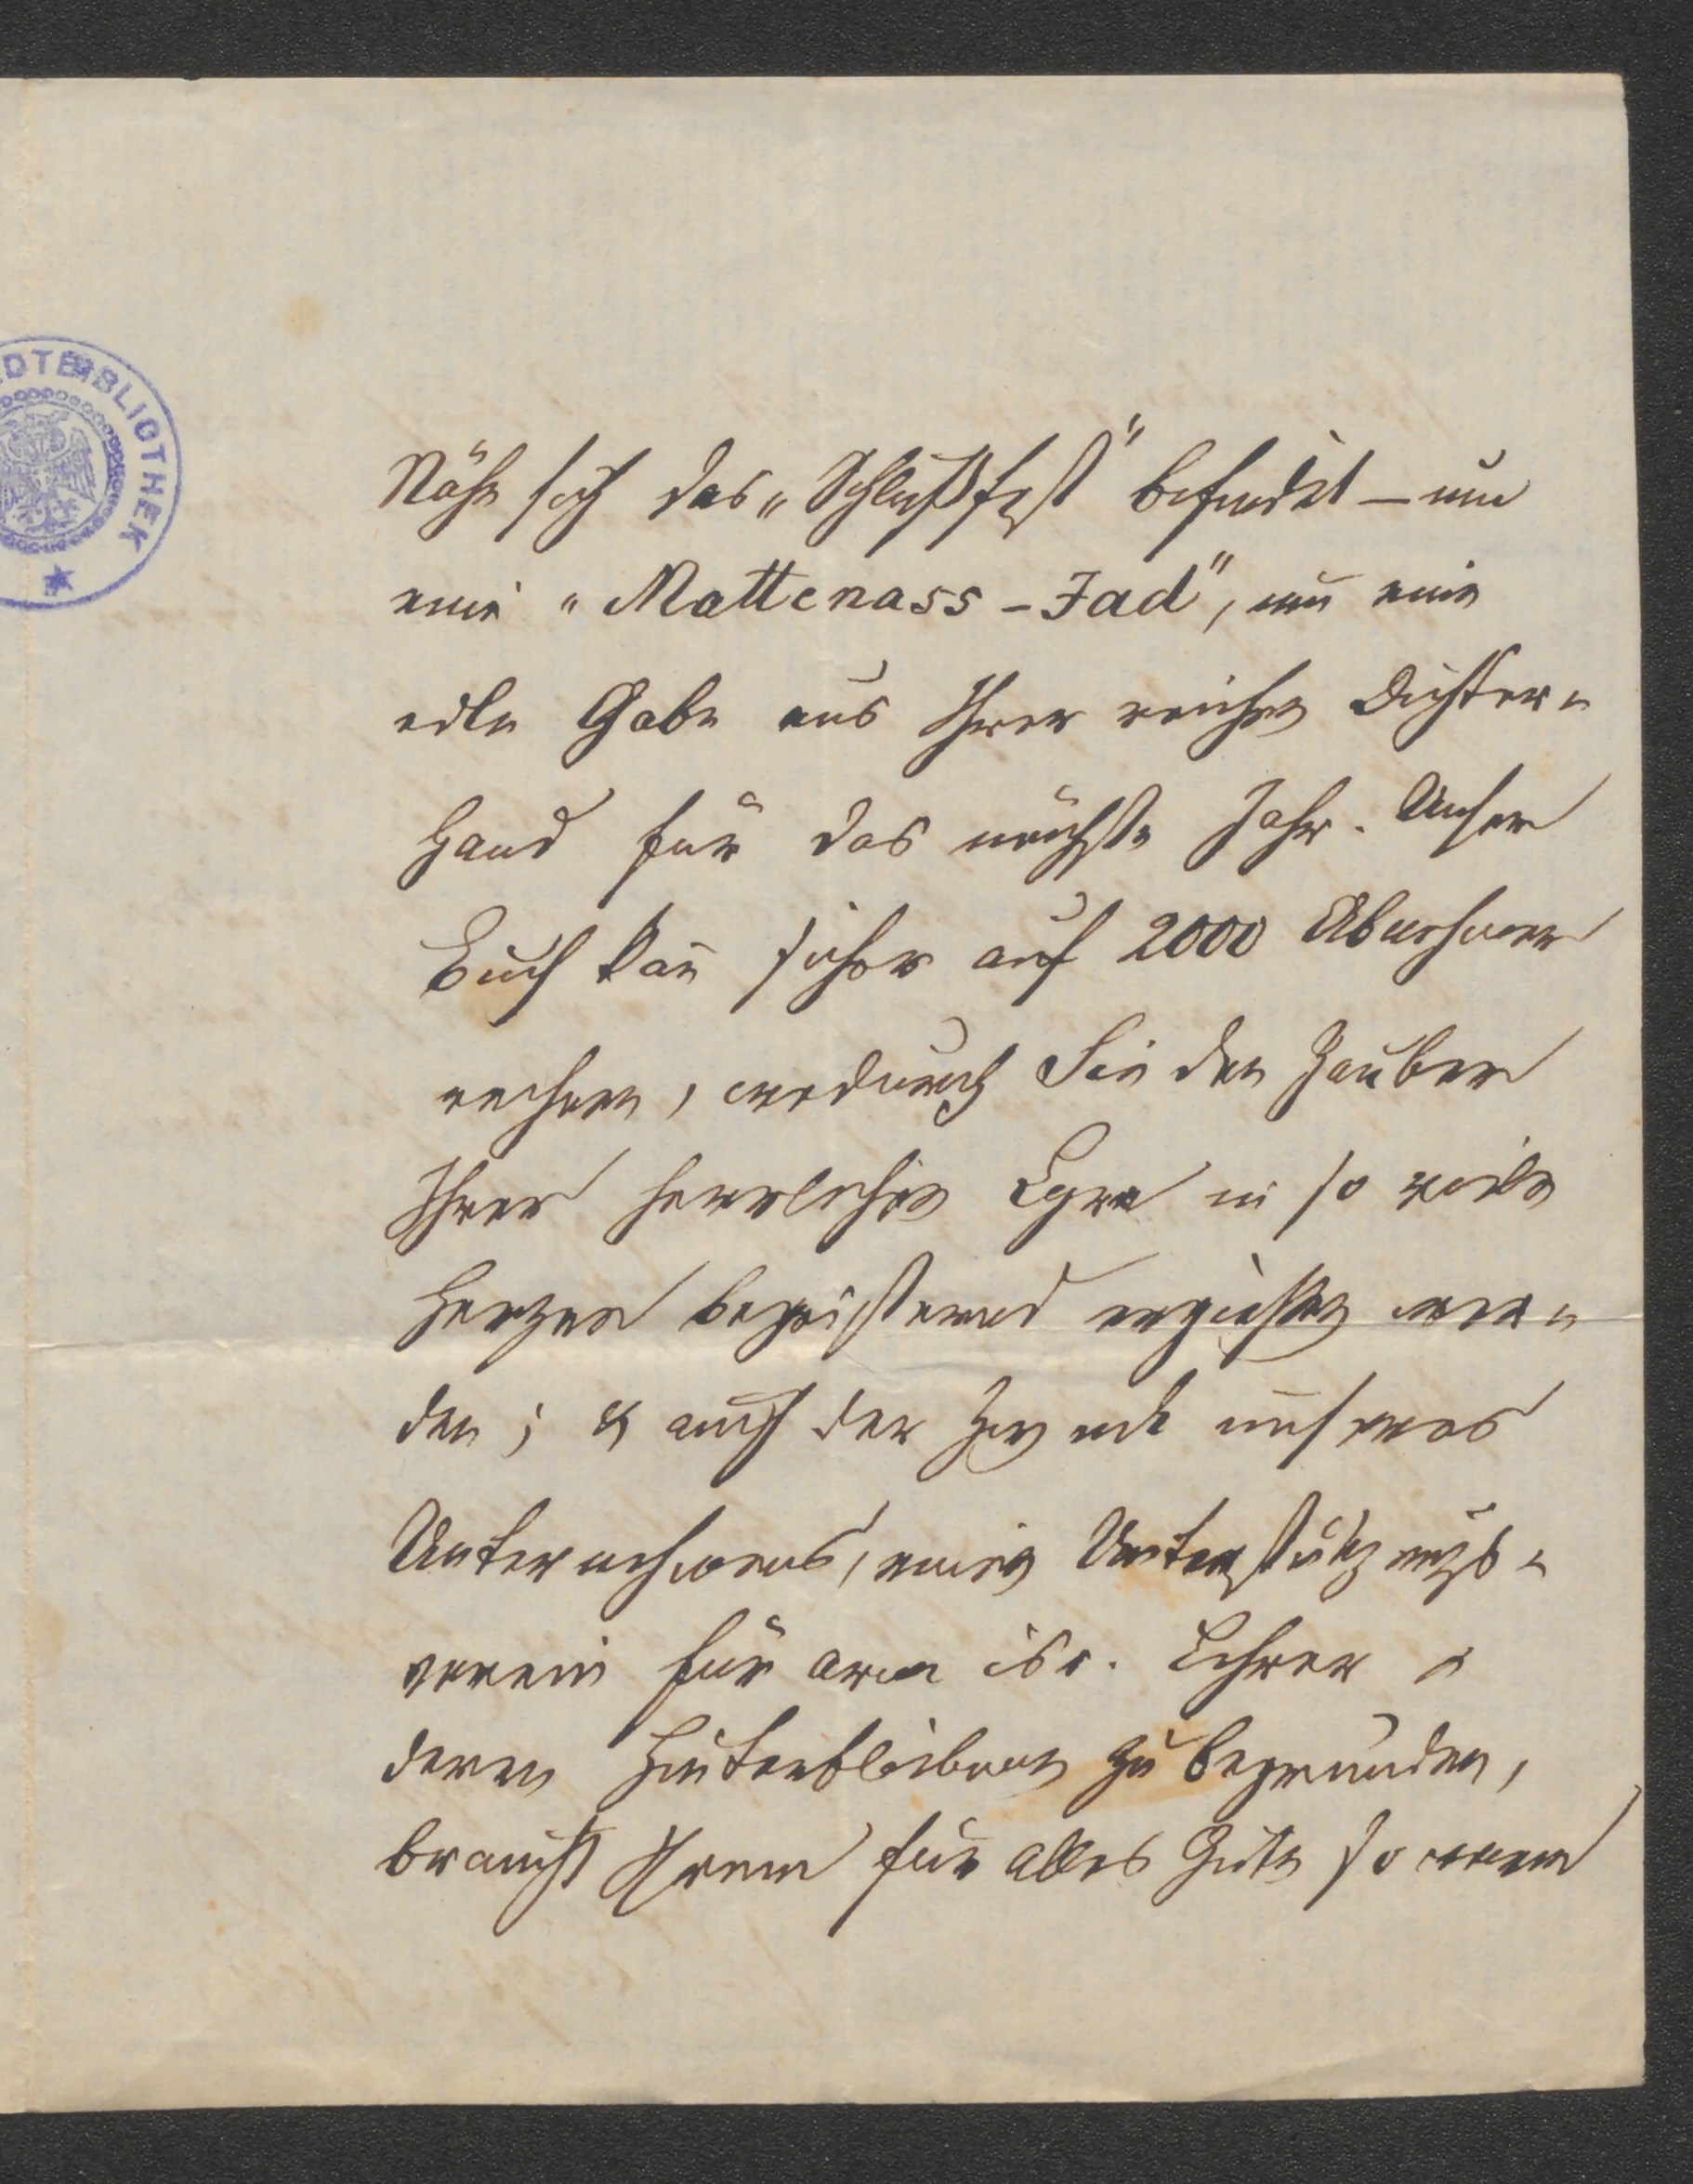 STADTBIBLIOTHEK
Nähe sich das „Schlußfest“ befindet – um
eine „Mattenass-Jad“, um eine
edle Gabe aus Ihrer reichen Dichter-
hand für das nächste Jahr. Unser
Buch kan̄ sicher auf 2000 Abnehmer
rechnen, wodurch Sie den Zauber
Ihrer herrlichen Lyra in so viele
Herzen begeisternd ergießen wer-
den; & auch der Zweck unseres
Unternehmens, einen Unterstützungs-
verein für arme isr. Lehrer &
deren Hinterbliebenen zu begründen,
braucht Ihrem für alles Gute so warm